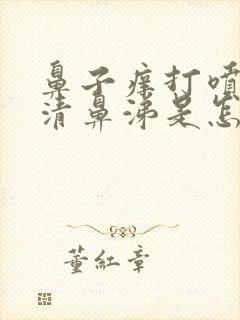 鼻子痒打喷
清鼻涕是怎
董紅章